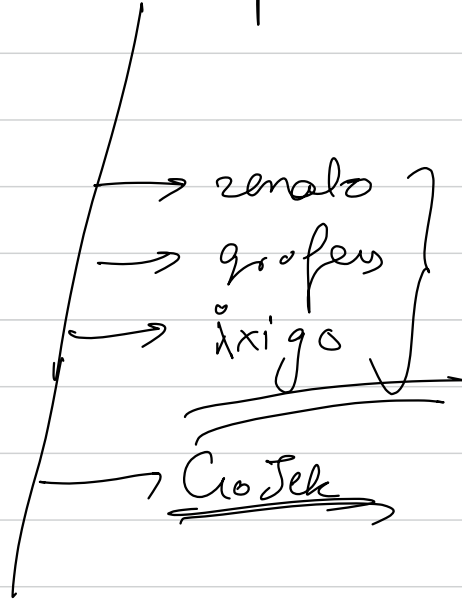 zomato
grofers
ixigo
GoJek